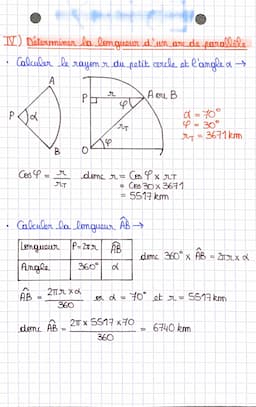 IV) Déterminer la longueur d'un arc de parallèle
• Calculer le rayon r du petit cercle et l'angle α →
A
P
α
B
P
r
A ou B
φ
rT
O
φ
α = 70°
φ = 30°
rT = 3671 km
Cos φ = r / rT donc r = Cos φ × rT
= Cos 30 × 3671
= 5517 km
• Calculer la longueur ÂB →
Longueur P=2πr ÂB
Angle 360° α
donc 360° × ÂB = 2πr × α
ÂB = 2πr×α / 360 or α = 70° et r = 5517 km
donc ÂB = 2π × 5517 × 70 / 360 = 6740 km